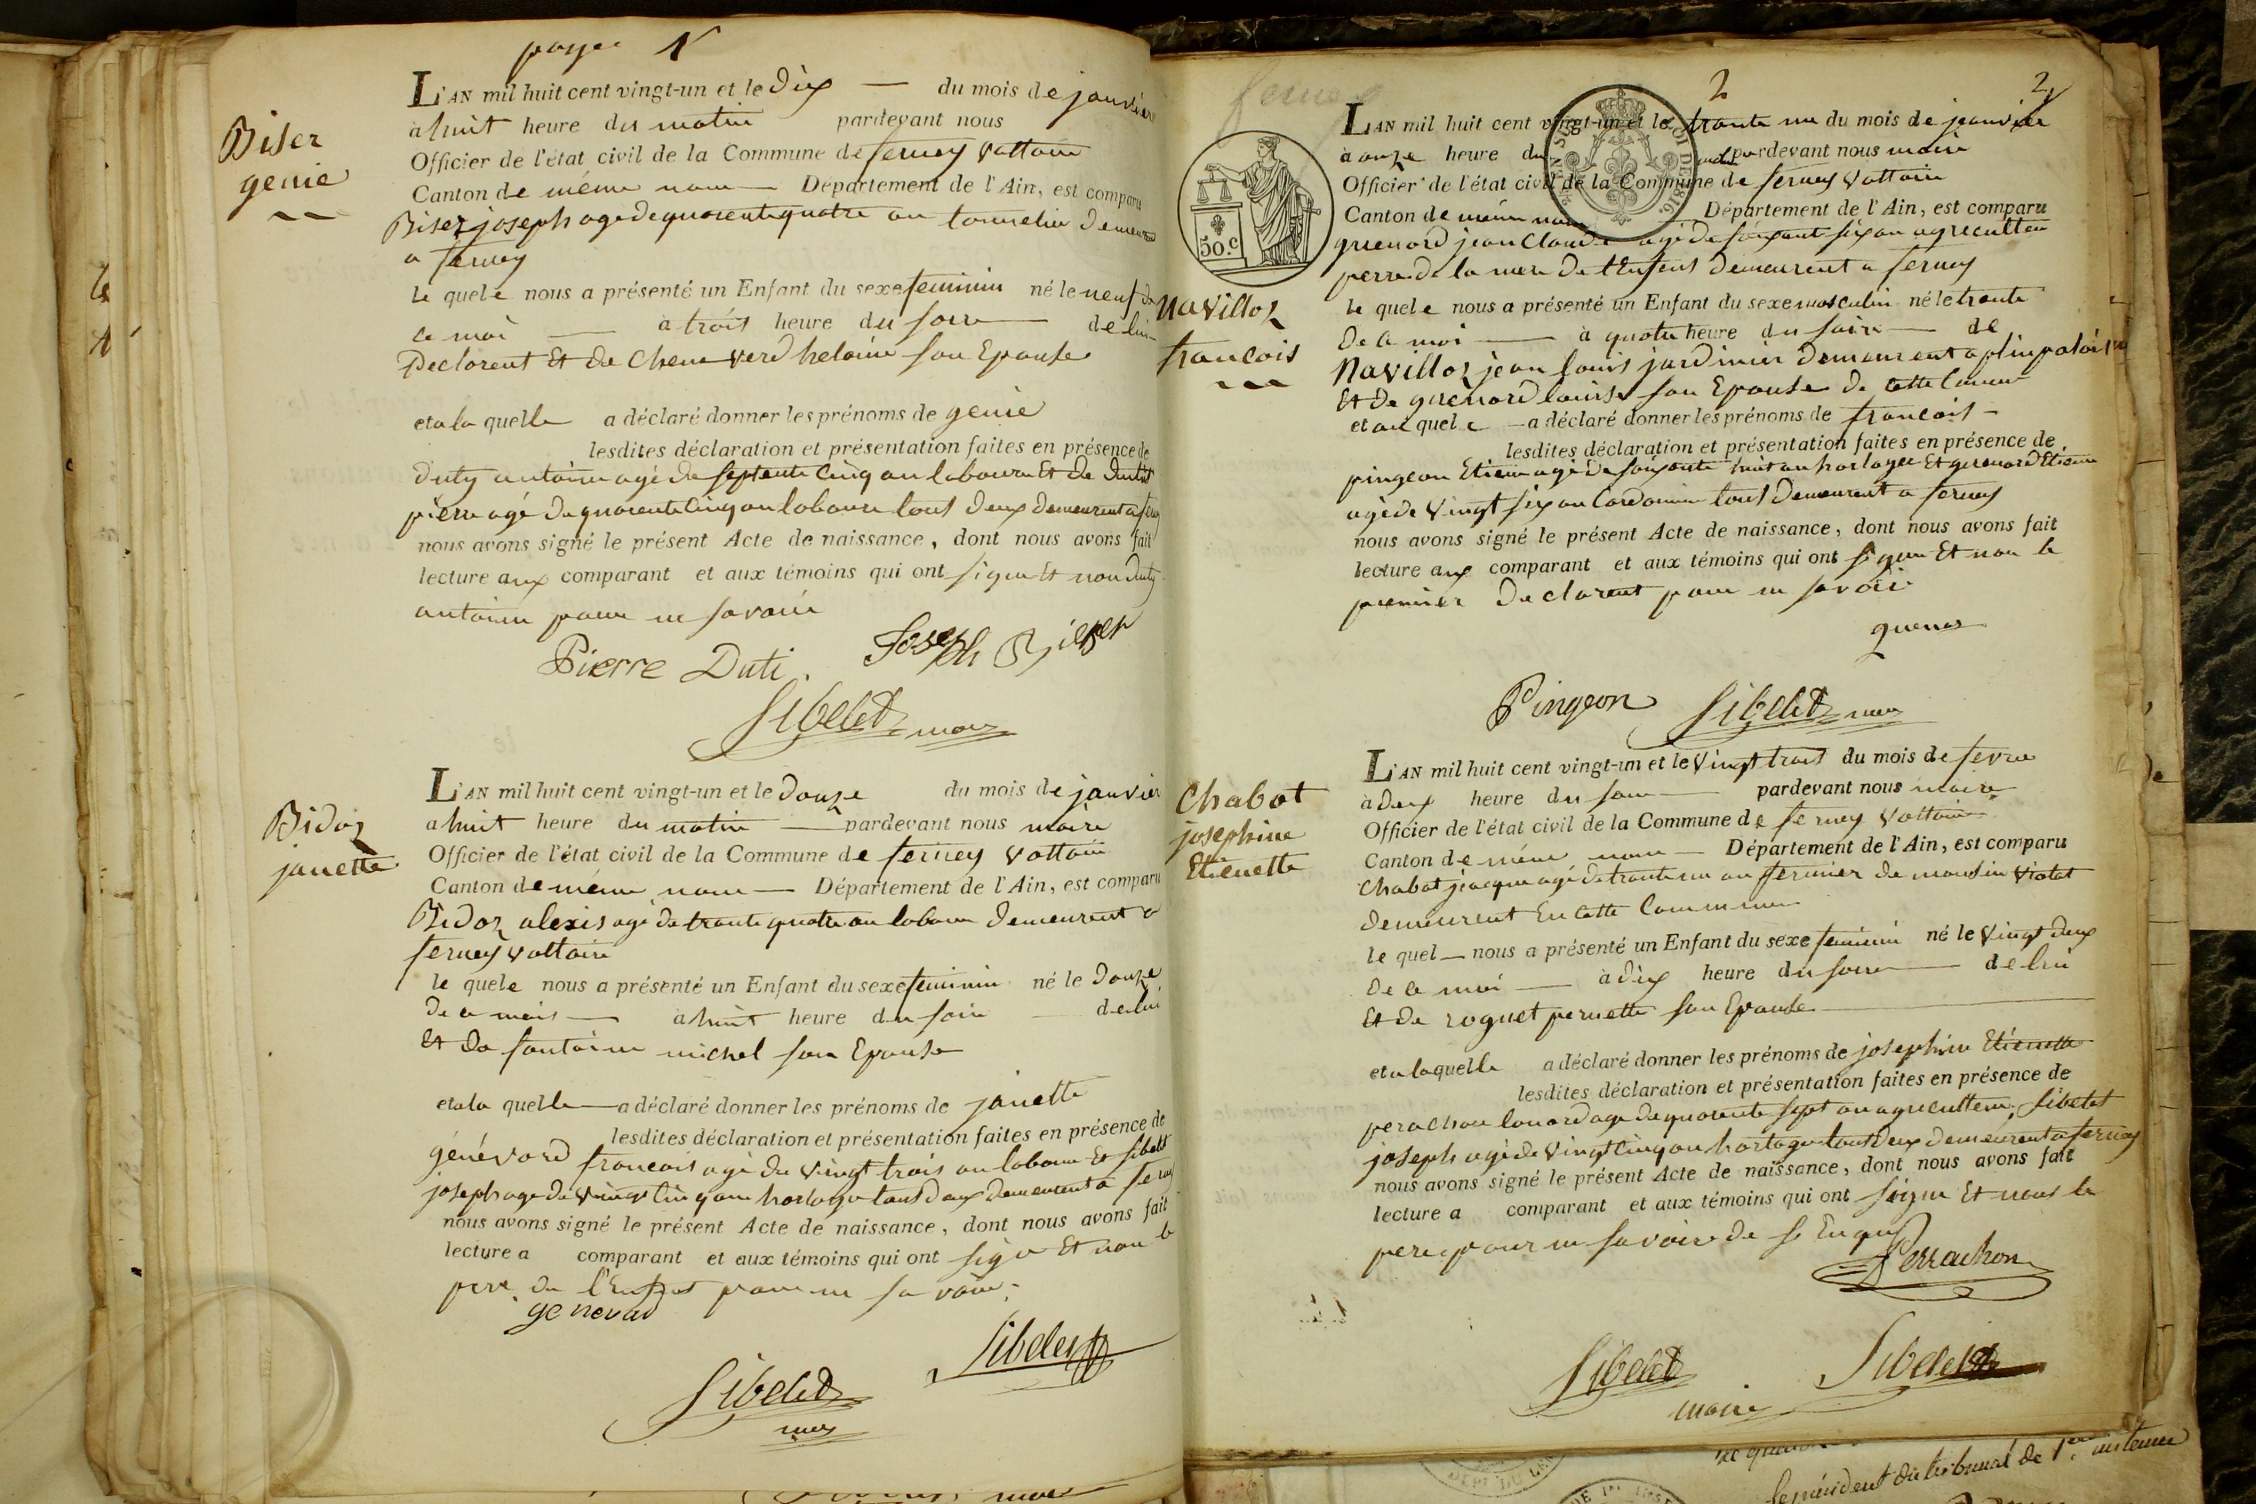 page 1
Biser
genie
L'AN mil huit cent vingt-un et le dix du mois de janvier
a huit heure du matin pardevant nous
Officier de l'état civil de la Commune de ferney Voltaire
Canton de méme nom Département de l'Ain, est comparu
Biser joseph agé de quarente quatre an tonnelier demeur
a ferney
le quel e nous a présenté un Enfant du sexe feminin né le neuf de
ce moi à trois heure du soire de lui
Declarent Et de Chenevard helaine son Epouse
et a la quelle a déclaré donner les prénoms de genie
lesdites déclaration et présentation faites en présence de
duty antoine agé de septente Cinq an laboureu Et de dutit
pierre agé de quarente Cinq an laboure tout deux demeurent a ferney
nous avons signé le présent Acte de naissance, dont nous avons fait
lecture aux comparant et aux témoins qui ont signe Et non duty
antoine pour ne savoir
Pierre Duti. Joseph Bieser
Sibelet maire
Bidoz
janette
L'AN mil huit cent vingt-un et le douze du mois de janvier
a huit heure du matin pardevant nous maire
Officier de l'état civil de la Commune de ferney Voltaire
Canton de méme nom Département de l'Ain, est comparu
Bidoz alexis agé de trante quatre an laboure demeurent a
ferney Voltaire
le quel e nous a présenté un Enfant du sexe feminin né le douze
de ce mois a huit heure du soir de lui
Et de fontaine michel son Epouse
et a la quelle a déclaré donner les prénoms de janette
lesdites déclaration et présentation faites en présence de
génévard francois agé de vingt trois an laboure Et sibelet
joseph age de vingt Cinq ans horloge tout deux demeurent a ferney
nous avons signé le présent Acte de naissance, dont nous avons fait
lecture a comparant et aux témoins qui ont signe Et non le
pere de l'Enfant pour ne savoir.
genevard
Sibelet
Sibelet
maire
2
2
L'AN mil huit cent vingt-un et le trante un du mois de jeanvier
à onze heure du pardevant nous maire
Officier de l'état civil de la Commune de ferney Voltaire
Canton de méme nom Département de l'Ain, est comparu
50.c
guenord jean Claude agé de soixant six an agreculteu
perre de la mere de l'Enfent demeurent a ferney
Navilloz
francois
le quel e nous a présenté un Enfant du sexe masculin né le trante
de ce moi à quatre heure du soire de
Navilloz jean louis jardinier demeurent a
Et de guenord louise son Epouse de cette Commune
et au quel e a déclaré donner les prénoms de francois
lesdites déclaration et présentation faites en présence de
pingeon Etienne agé de soixante huit an horloger Et guenord Etienne
agé de vingt six an Cordonnier tout demeurent a ferney
nous avons signé le présent Acte de naissance, dont nous avons fait
lecture aux comparant et aux témoins qui ont signe Et non le
premier declarent pour ne savoir
guenor
Pingeon Sibelet maire
Chabot
josephine
Etienette
L'AN mil huit cent vingt-un et le vingt trois du mois de fevrie
à deux heure du soire pardevant nous maire
Officier de l'état civil de la Commune de ferney Voltaire
Canton de méme nom Département de l'Ain, est comparu
Chabot jeacque agé de trante un an fermier de monsieu Viotat
demeurent En Cette Commune
le quel nous a présenté un Enfant du sexe feminin né le vingt deux
de ce moi à dix heure du soire de lui
Et de roguet pernette son Epouse
et a laquelle a déclaré donner les prénoms de josephine Etienette
lesdites déclaration et présentation faites en présence de
perachon age de quarente sept an agreculteur Sibelet
joseph agé de vingt Cinq an horloge tout deux demeurent a ferney
nous avons signé le présent Acte de naissance, dont nous avons fait
lecture a comparant et aux témoins qui ont signe Et nous le
pere pour ne savoir de
Perrachon
Sibelet Sibelet
maire
Le président du tribunal de 1ere instance